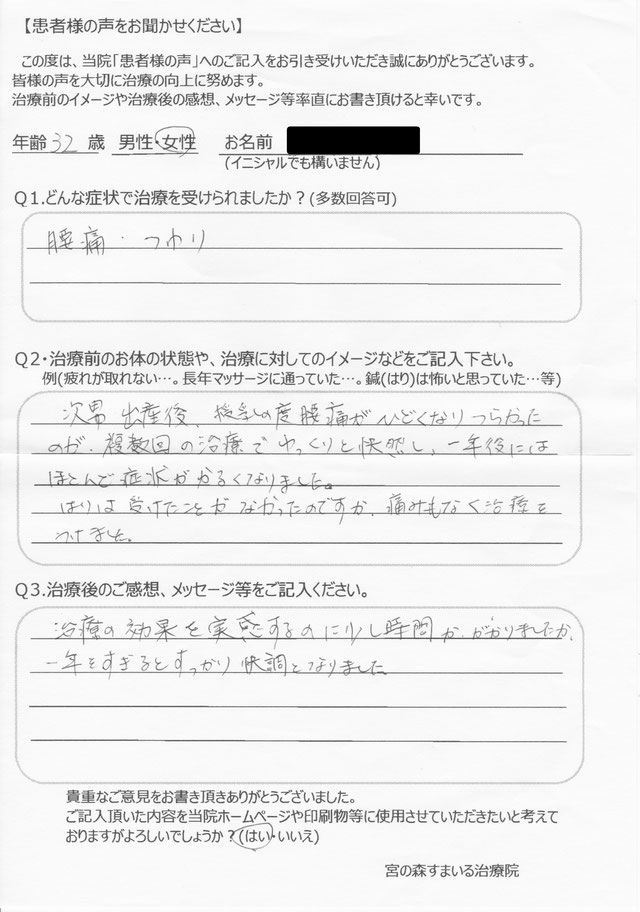 【患者様の声をお聞かせください】
この度は、当院「患者様の声」へのご記入をお引き受けいただき誠にありがとうございます。
皆様の声を大切に治療の向上に努めます。
治療前のイメージや治療後の感想、メッセージ等率直にお書き頂けると幸いです。
年齢 32 歳 男性・女性 お名前
(イニシャルでも構いません)
Q1.どんな症状で治療を受けられましたか？(多数回答可)
腰痛・つわり
Q2・治療前のお体の状態や、治療に対してのイメージなどをご記入下さい。
例(疲れが取れない…。長年マッサージに通っていた…。鍼(はり)は怖いと思っていた…等)
次男出産後、授乳の度腰痛がひどくなりつらかった
のが、複数回の治療でゆっくりと快然し、一年後には
ほとんど症状がかるくなりました。
はりは受けたことがなかったのですが、痛みもなく治療を
うけました。
Q3.治療後のご感想、メッセージ等をご記入ください。
治療の効果を実感するのに少し時間が、かかりましたが、
一年をすぎるとすっかり快調となりました
貴重なご意見をお書き頂きありがとうございました。
ご記入頂いた内容を当院ホームページや印刷物等に使用させていただきたいと考えて
おりますがよろしいでしょうか？(はい・いいえ)
宮の森すまいる治療院